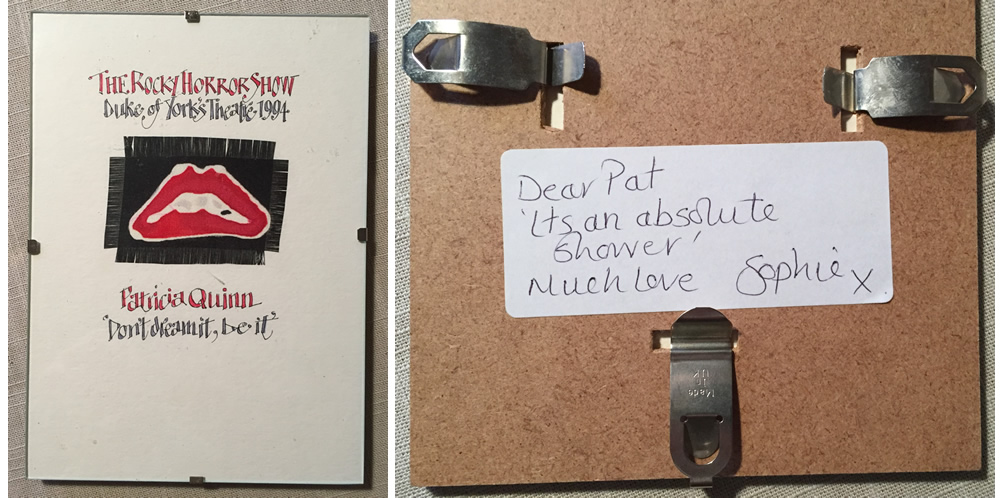 THE ROCKY HORROR SHOW
Duke of York's Theatre·1994
Patricia Quinn
'Don't dream it, be it'
Dear Pat
'Its an absolute
shower'
Much love Sophie x
Made
in
UK